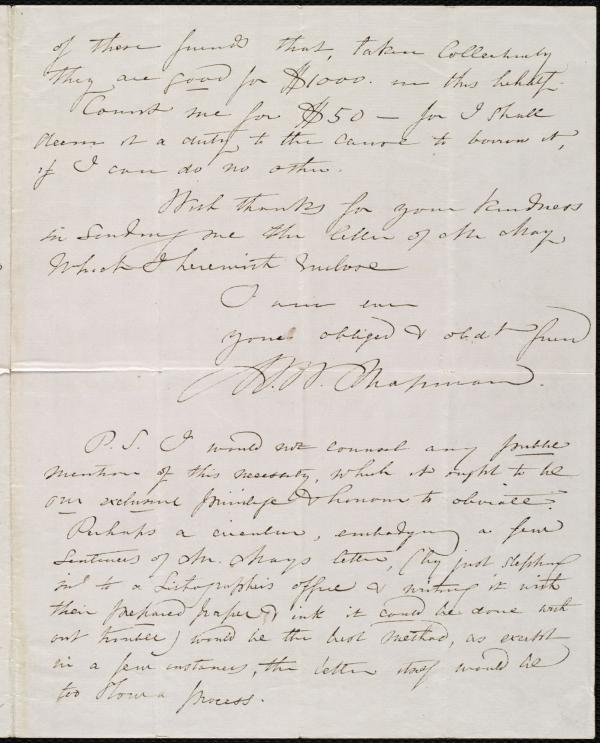 of these friends that, taken Collectively
they are good for $1000. in this behalf.
Count me for $50 — for I shall
deem it a duty to the cause to borrow it,
if I can do no other.
With thanks for your kindness
in sending me the letter of Mr May,
Which I herewith enclose
I am ever
yours obliged & obdt friend
Chapman.
P.S. I would not counsel any public
mention of this necessity, which it ought to be
our exclusive privilege & honour to obviate.
Perhaps a circular, embodying a few
sentences of Mr. Mays letter, (by just stepping
in to a Lithographers office & writing it with
their prepared paper & ink it could be done with
out trouble) would be the best method, as except
in a few instances, the letter itself would be
too slow a process.